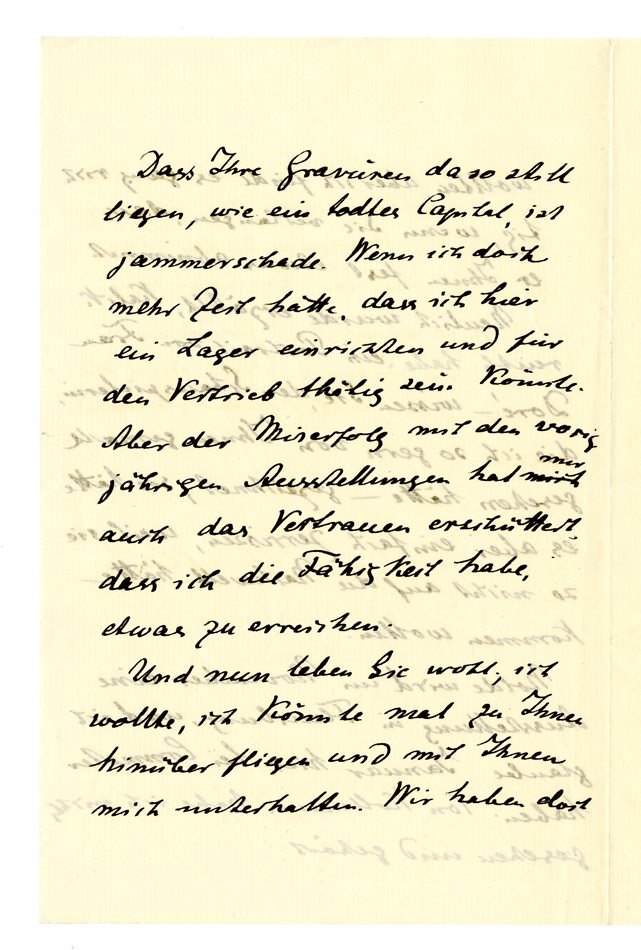 Dass Ihre Gravüren da so still
liegen, wie ein todtes Capital, ist
jammerschade. Wenn ich doch
mehr Zeit hätte, dass ich hier
ein Lager einrichten und für
den Vertrieb thätig sein könnte.
Aber der Misserfolg mit den vorig
jährigen Ausstellungen hat mir
auch das Vertrauen erschüttert,
dass ich die Fähigkeit habe,
etwas zu erreichen.
Und nun leben Sie wohl, ich
wollte, ich könnte mal zu Ihnen
hinüber fliegen und mit Ihnen
mich unterhalten. Wir haben dort